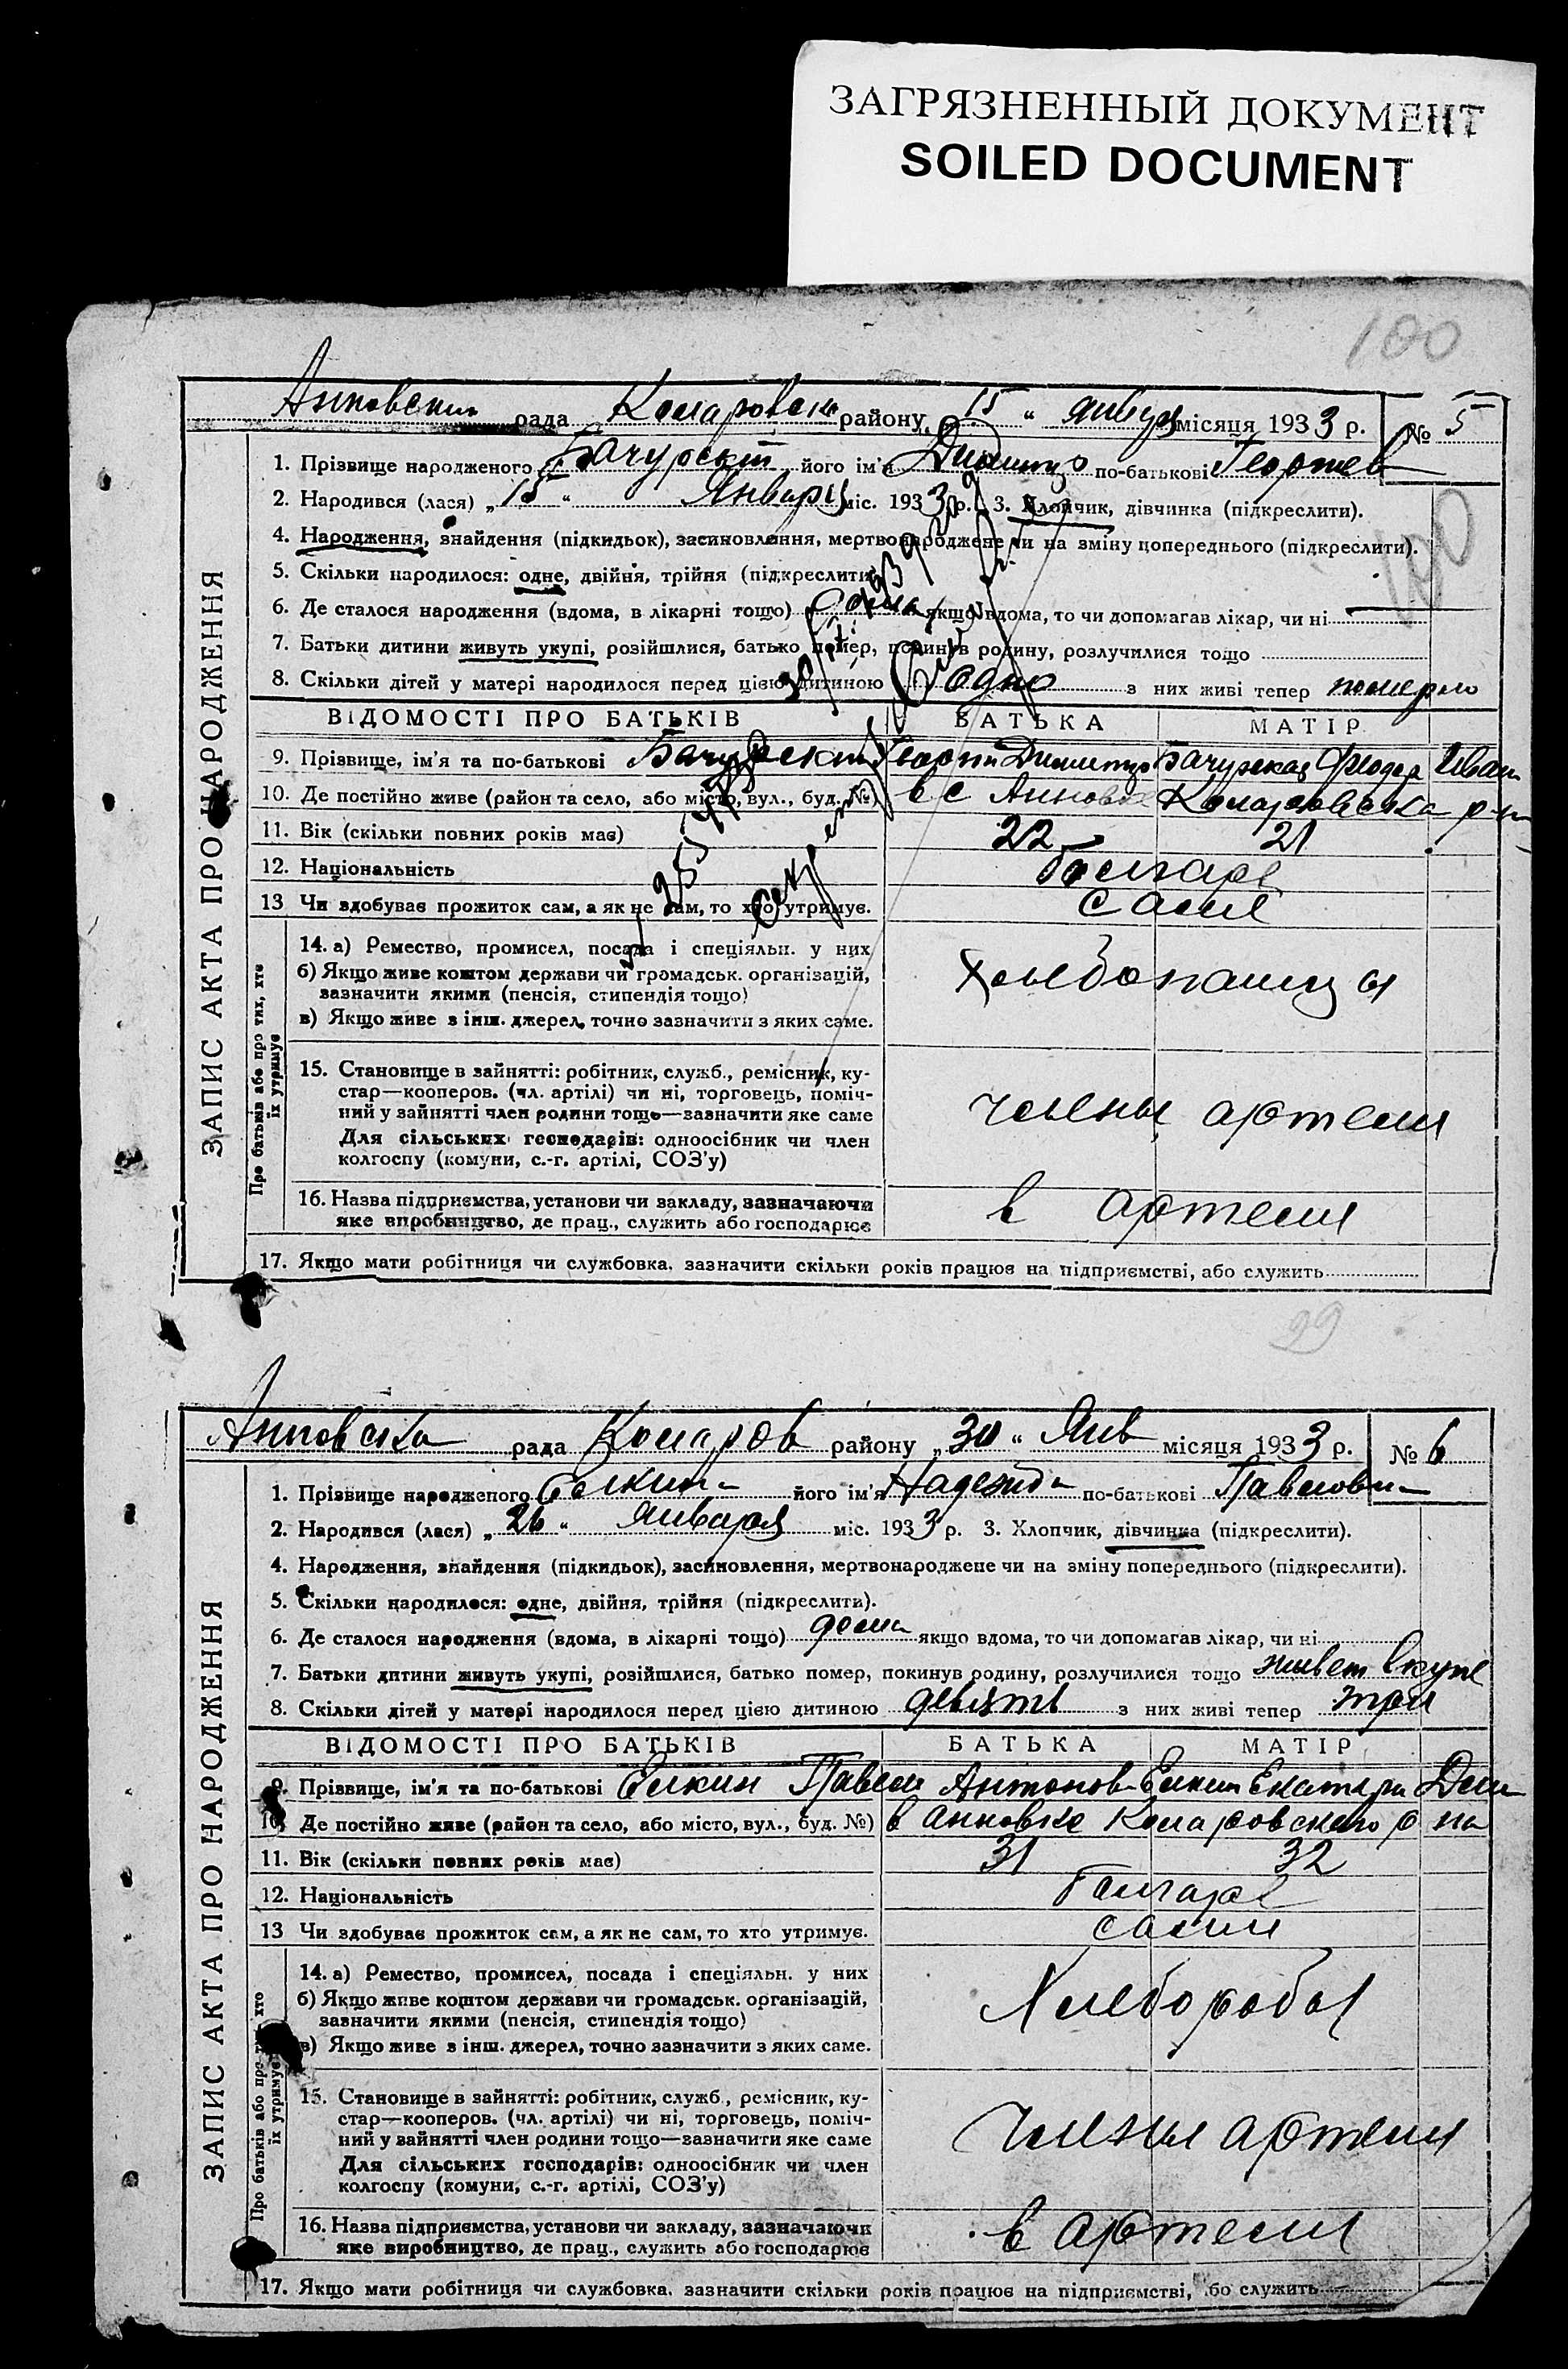 ЗАГРЯЗНЕННЫЙ ДОКУМЕНТ
SOILED DOCUMENT
100
Анновский рада Комаровск району „15“ январ місяця 1933 р. № 5
100
ЗАПИС АКТА ПРО НАРОДЖЕННЯ
1. Прізвище народженого Бачурский його ім'я Димитр по-батькові Георгиев
2. Народився (лася) „15“ Января міс. 1933 р. 3. Хлопчик, дівчинка (підкреслити).
4. Народження, знайдення (підкидьок), засиновлення, мертвонароджене чи на зміну попереднього (підкреслити).
5. Скільки народилося: одне, двійня, трійня (підкреслити)
6. Де сталося народження (вдома, в лікарні тощо) дома якщо вдома, то чи допомагав лікар, чи ні
7. Батьки дитини живуть укупі, розійшлися, батько помер, покинув родину, розлучилися тощо
8. Скільки дітей у матері народилося перед цією дитиною одно з них живі тепер померло
ВІДОМОСТІ ПРО БАТЬКІВ БАТЬКА МАТІР
9. Прізвище, ім'я та по-батькові Бачурский Георги Димитр Бачурская Феодор Иван
10. Де постійно живе (район та село, або місто, вул., буд. №) в с Анновке Комаровска р-н
11. Вік (скільки повних років має) 22 21
12. Національність болгаре
13 Чи здобуває прожиток сам, а як не сам, то хто утримує. сами
Про батьків або про тих, хто їх утримує
14. а) Ремество, промисел, посада і спеціяльн. у них
б) Якщо живе коштом держави чи громадськ. організацій,
зазначити якими (пенсія, стипендія тощо)
в) Якщо живе з інш. джерел, точно зазначити з яких саме.
Хлебопашцы
15. Становище в зайнятті: робітник, служб., ремісник, ку-
стар—кооперов. (чл. артілі) чи ні, торговець, поміч-
ний у зайнятті член родини тощо—зазначити яке саме
Для сільських господарів: одноосібник чи член
колгоспу (комуни, с.-г. артілі, СОЗ'у)
члены артели
16. Назва підприємства, установи чи закладу, зазначаючи
яке виробництво, де прац., служить або господарює
в артели
17. Якщо мати робітниця чи службовка, зазначити скільки років працює на підприємстві, або служить
99
Анновска рада Комаров району „30“ Янв місяця 1933 р. № 6
ЗАПИС АКТА ПРО НАРОДЖЕННЯ
1. Прізвище народженого Елкина його ім'я Надежда по-батькові Павловна
2. Народився (лася) „26“ Января міс. 1933 р. 3. Хлопчик, дівчинка (підкреслити).
4. Народження, знайдення (підкидьок), засиновлення, мертвонароджене чи на зміну попереднього (підкреслити).
5. Скільки народилося: одне, двійня, трійня (підкреслити).
6. Де сталося народження (вдома, в лікарні тощо) дома якщо вдома, то чи допомагав лікар, чи ні
7. Батьки дитини живуть укупі, розійшлися, батько помер, покинув родину, розлучилися тощо живет вкупе
8. Скільки дітей у матері народилося перед цією дитиною девять з них живі тепер три
ВІДОМОСТІ ПРО БАТЬКІВ БАТЬКА МАТІР
9. Прізвище, ім'я та по-батькові Елкин Павел Антонов Елкин Екатери Дем
10. Де постійно живе (район та село, або місто, вул., буд. №) в Анновке Комаровского р на
11. Вік (скільки повних років має) 31 32
12. Національність болгаре
13 Чи здобуває прожиток сам, а як не сам, то хто утримує. сами
Про батьків або про тих, хто їх утримує
14. а) Ремество, промисел, посада і спеціяльн. у них
б) Якщо живе коштом держави чи громадськ. організацій,
зазначити якими (пенсія, стипендія тощо)
в) Якщо живе з інш. джерел, точно зазначити з яких саме.
Хлеборобы
15. Становище в зайнятті: робітник, служб., ремісник, ку-
стар—кооперов. (чл. артілі) чи ні, торговець, поміч-
ний у зайнятті член родини тощо—зазначити яке саме
Для сільських господарів: одноосібник чи член
колгоспу (комуни, с.-г. артілі, СОЗ'у)
члены артели
16. Назва підприємства, установи чи закладу, зазначаючи
яке виробництво, де прац., служить або господарює
в артели
17. Якщо мати робітниця чи службовка, зазначити скільки років працює на підприємстві, або служить